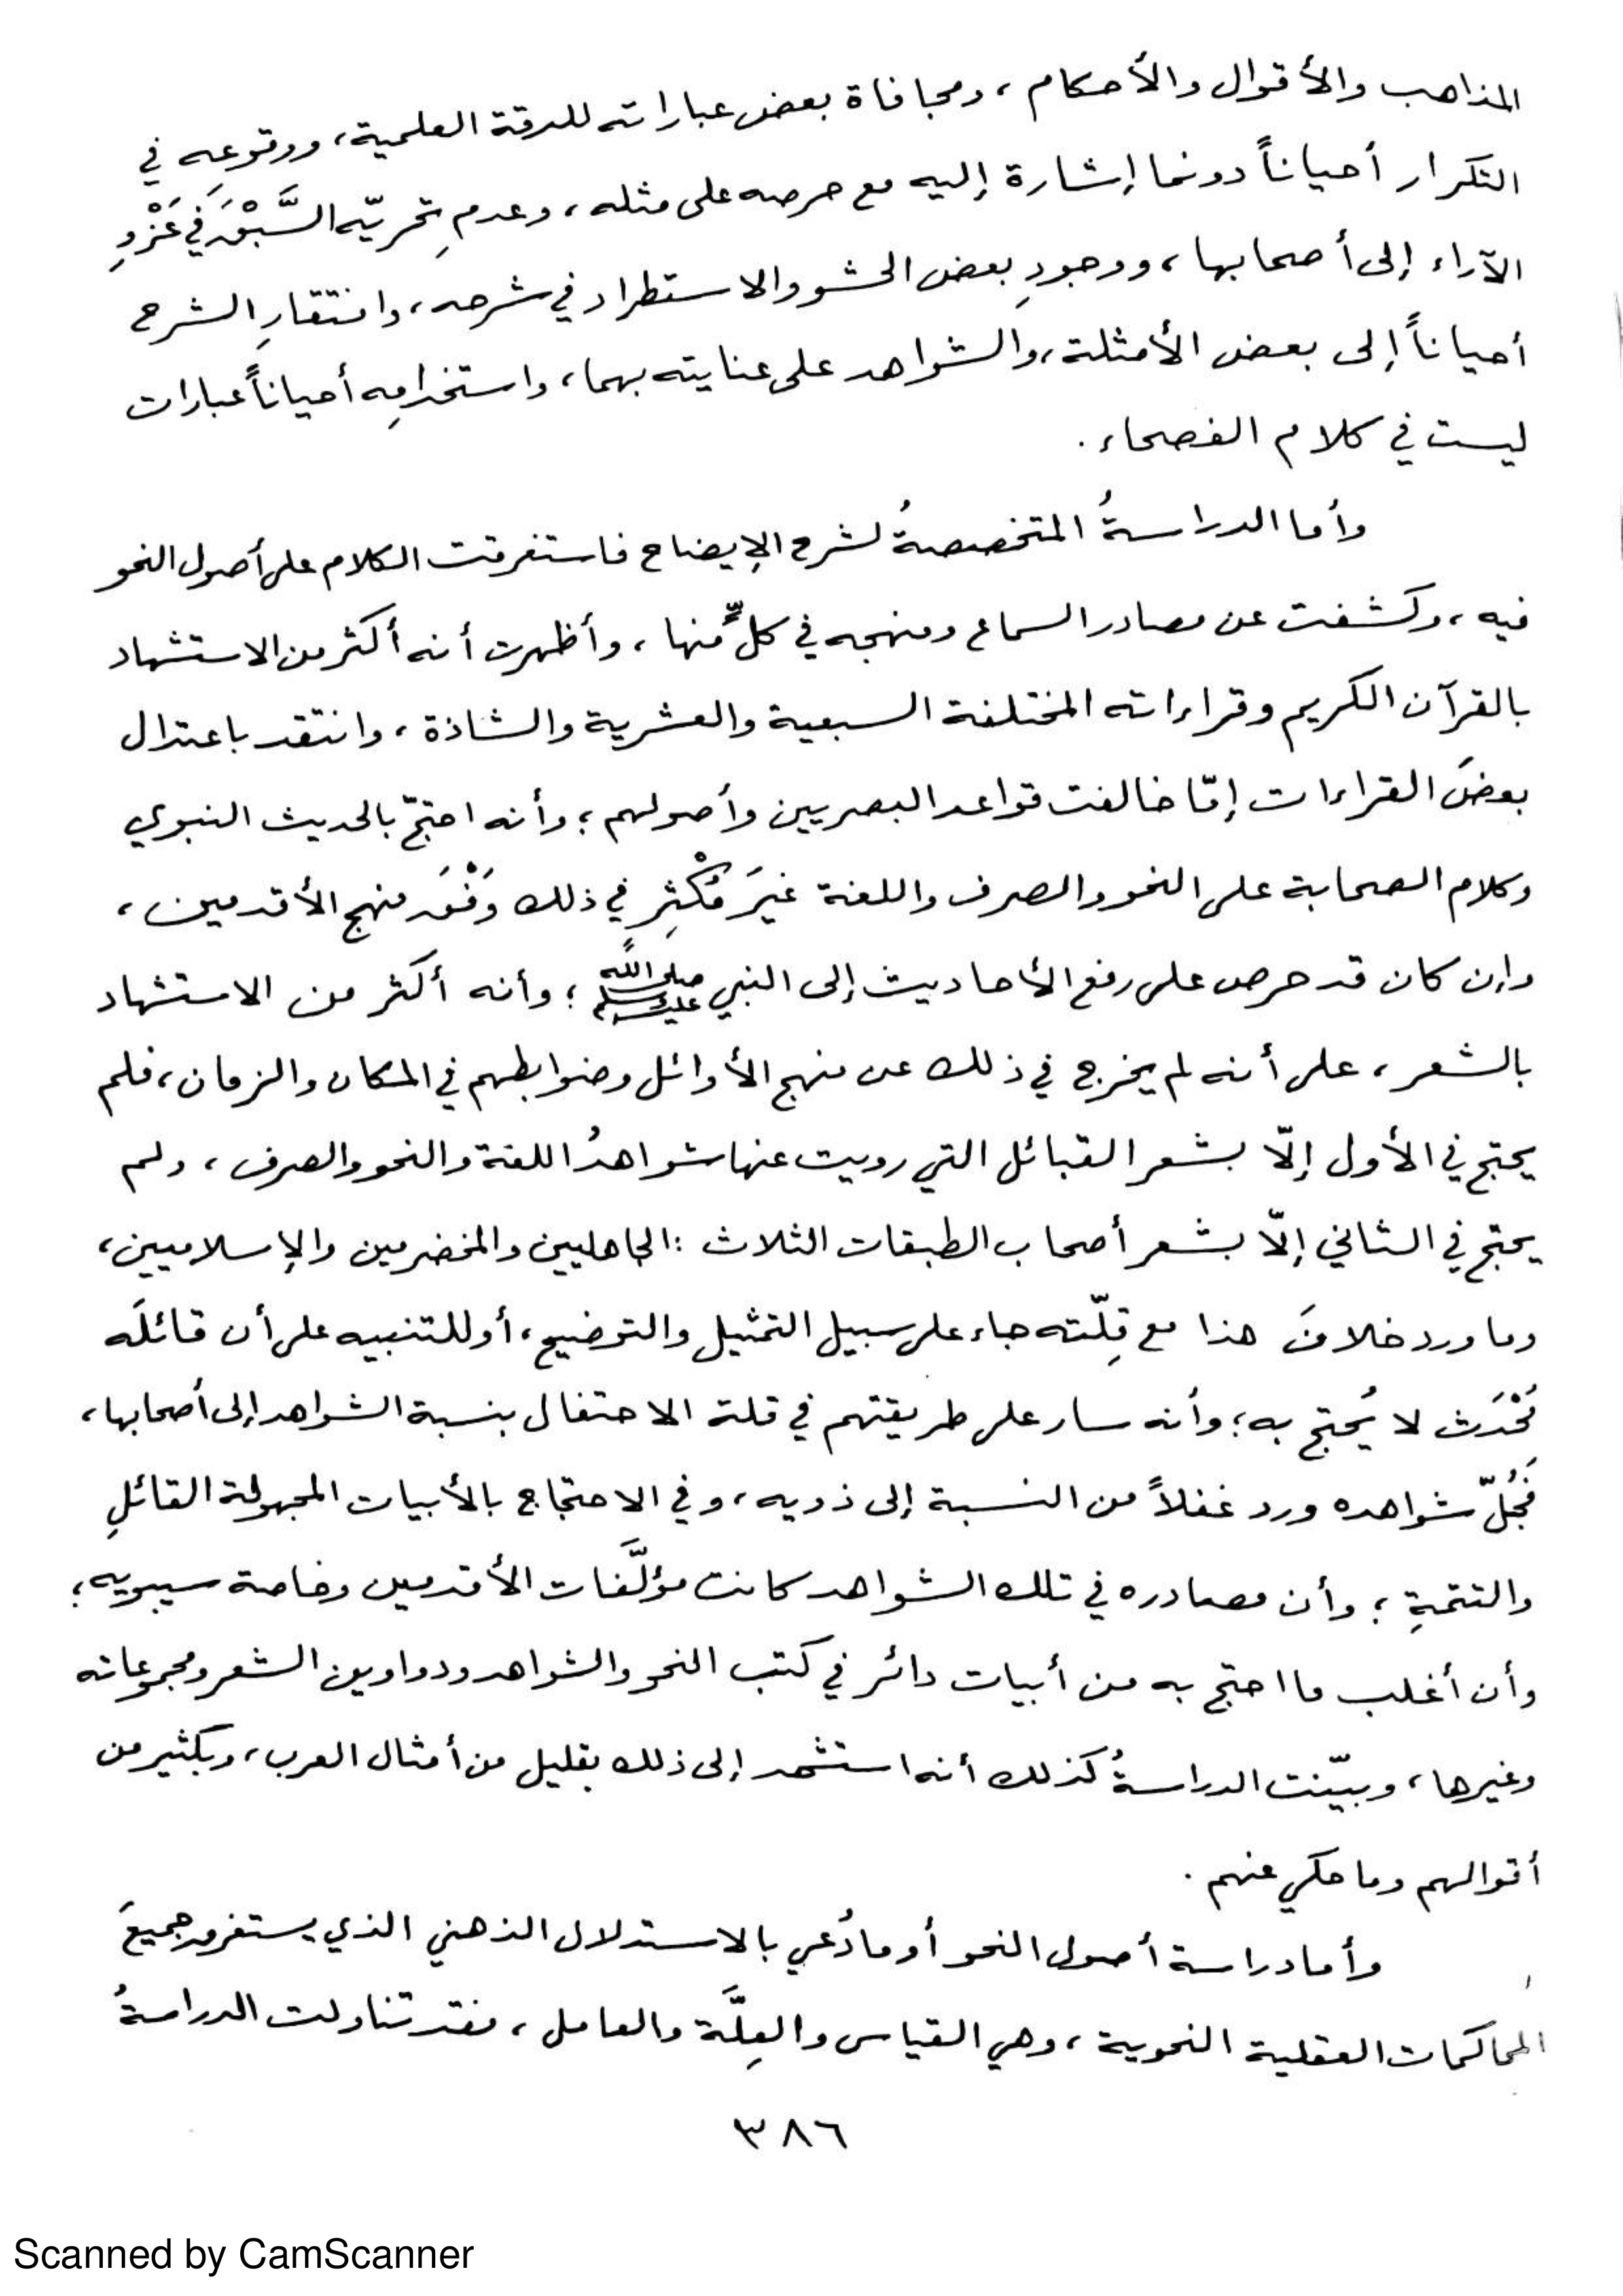 المذاهب والأقوال والأحكام، ومجافاة بعض عباراته للدقة العلمية، ووقوعه في
التكرار أحياناً دونما إشارة إليه مع حرصه على مثله، وعدمِ تحريّه السَّبْقَ في عَزْوِ
الآراء إلى أصحابها، ووجودِ بعض الحشو والاستطراد في شرحه، وافتقارِ الشرح
أحياناً إلى بعض الأمثلة، والشواهد على عنايته بهما، واستخدامِه أحياناً عبارات
ليست في كلام الفصحاء.
وأما الدراسةُ المتخصصةُ لشرح الإيضاح فاستغرقت الكلام على أصول النحو
فيه، وكشفت عن مصادر السماع ومنهجه في كلٍّ منها، وأظهرت أنه أكثر من الاستشهاد
بالقرآن الكريم وقراءاته المختلفة السبعية والعشرية والشاذة، وانتقد باعتدال
بعضَ القراءات إمّا خالفت قواعد البصريين وأصولهم؛ وأنه احتجّ بالحديث النبوي
وكلام الصحابة على النحو والصرف واللغة غيرَ مُكْثِرٍ في ذلك وَفْقَ منهج الأقدمين،
وإن كان قد حرص على رفع الأحاديث إلى النبي صلى الله عليه وسلم؛ وأنه أكثر من الاستشهاد
بالشعر، على أنه لم يخرج في ذلك عن منهج الأوائل وضوابطهم في المكان والزمان، فلم
يحتج في الأول إلّا بشعر القبائل التي رويت عنها شواهدُ اللغة والنحو والصرف، ولم
يحتج في الثاني إلّا بشعر أصحاب الطبقات الثلاث: الجاهليين والمخضرمين والإسلاميين،
وما ورد خلافَ هذا مع قِلّته جاء على سبيل التمثيل والتوضيح، أو للتنبيه على أن قائلَه
مُحْدَث لا يُحتج به؛ وأنه سار على طريقتهم في قلة الاحتفال بنسبة الشواهد إلى أصحابها،
فَجُلّ شواهده ورد غفلاً من النسبة إلى ذويه، وفي الاحتجاج بالأبيات المجهولة القائلِ
والتتمةِ؛ وأن مصادره في تلك الشواهد كانت مؤلَّفات الأقدمين وخاصة سيبويه؛
وأن أغلب ما احتج به من أبيات دائر في كتب النحو والشواهد ودواوين الشعر ومجموعاته
وغيرها، وبيّنت الدراسةُ كذلك أنه استشهد إلى ذلك بقليل من أمثال العرب، وبكثير من
أقوالهم وما حكي عنهم.
وأما دراسة أصول النحو أو ما دُعي بالاستدلال الذهني الذي يستغرق جميعَ
المحاكمات العقلية النحوية، وهي القياس والعِلَّة والعامل، فقد تناولت الدراسةُ
٣٨٦
Scanned by CamScanner